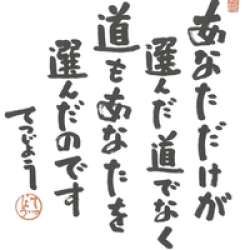 あなただけが
選んだ道でなく
道もあなたを
選んだのです
てつじょう